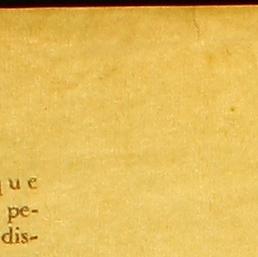 que
pe-
dis-